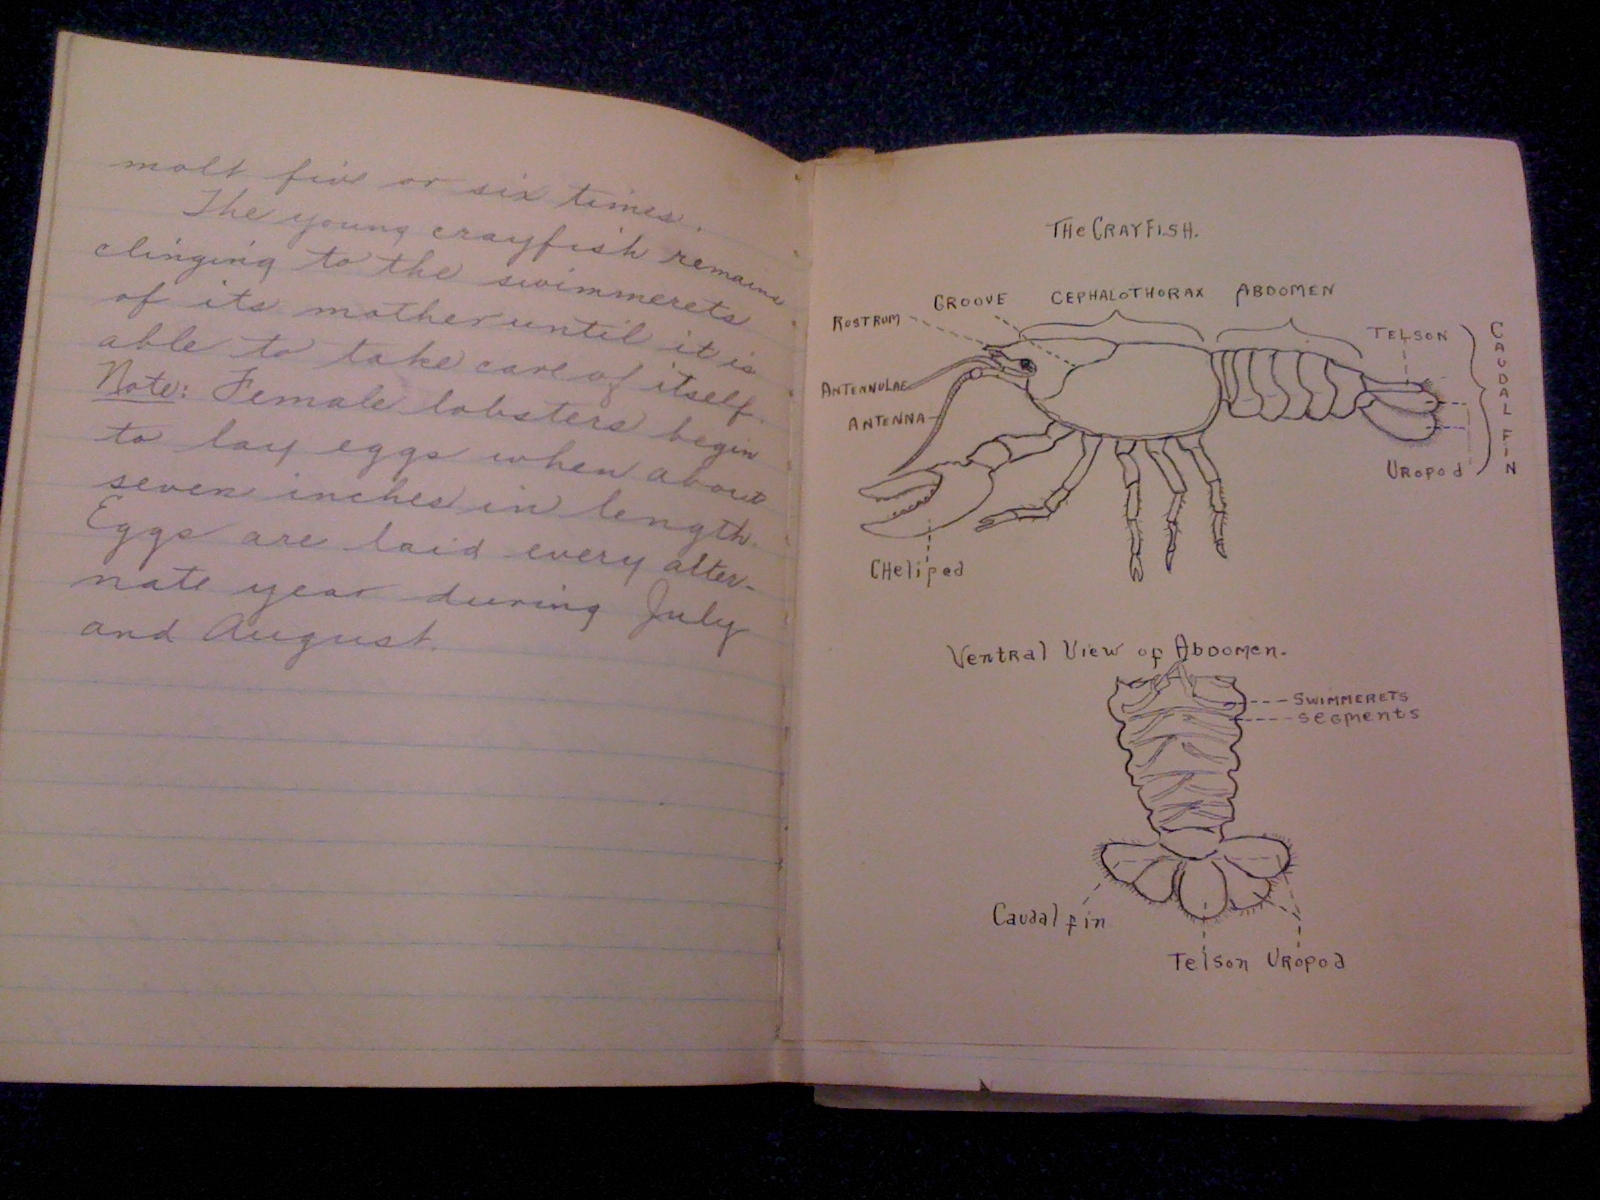 molt five or six times.
The young crayfish remains
clinging to the swimmerets
of its mother until it is
able to take care of itself.
Note: Female lobsters begin
to lay eggs when about
seven inches in length.
Eggs are laid every alter-
nate year during July
and August.
THe CRAYFISH.
GROOVE CEPHALOTHORAX ABDOMEN
ROSTRUM
TELSON
CAUDAL FIN
ANTENNULAE
ANTENNA
UROPOd
CHeliped
Ventral View of Abdomen.
SWIMMERETS
segments
Caudal fin
Telson Uropod